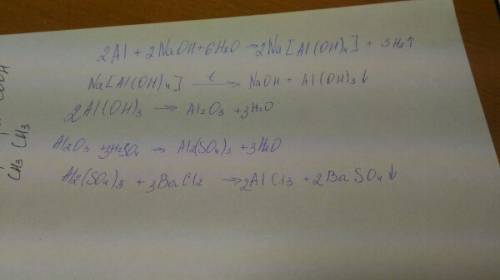 2Al + 2NaOH + 6H2O → 2Na[Al(OH)4] + 3H2↑
Na[Al(OH)4] —t→ NaOH + Al(OH)3↓
2Al(OH)3 → Al2O3 + 3H2O
Al2O3 + 3H2SO4 → Al2(SO4)3 + 3H2O
Al2(SO4)3 + 3BaCl2 → 2AlCl3 + 2BaSO4↓
COOH
CH3 CH3